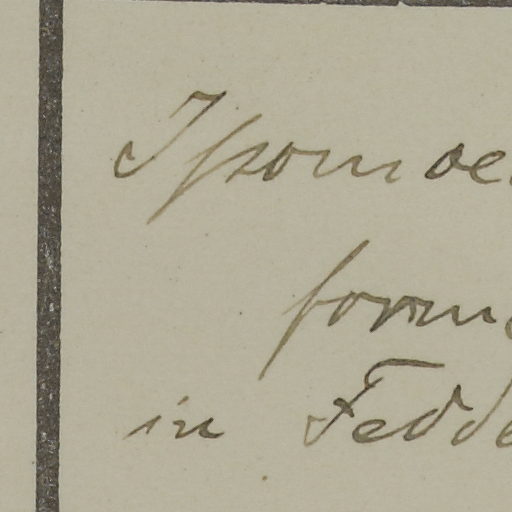 Ipomoe
forma
in Fedde